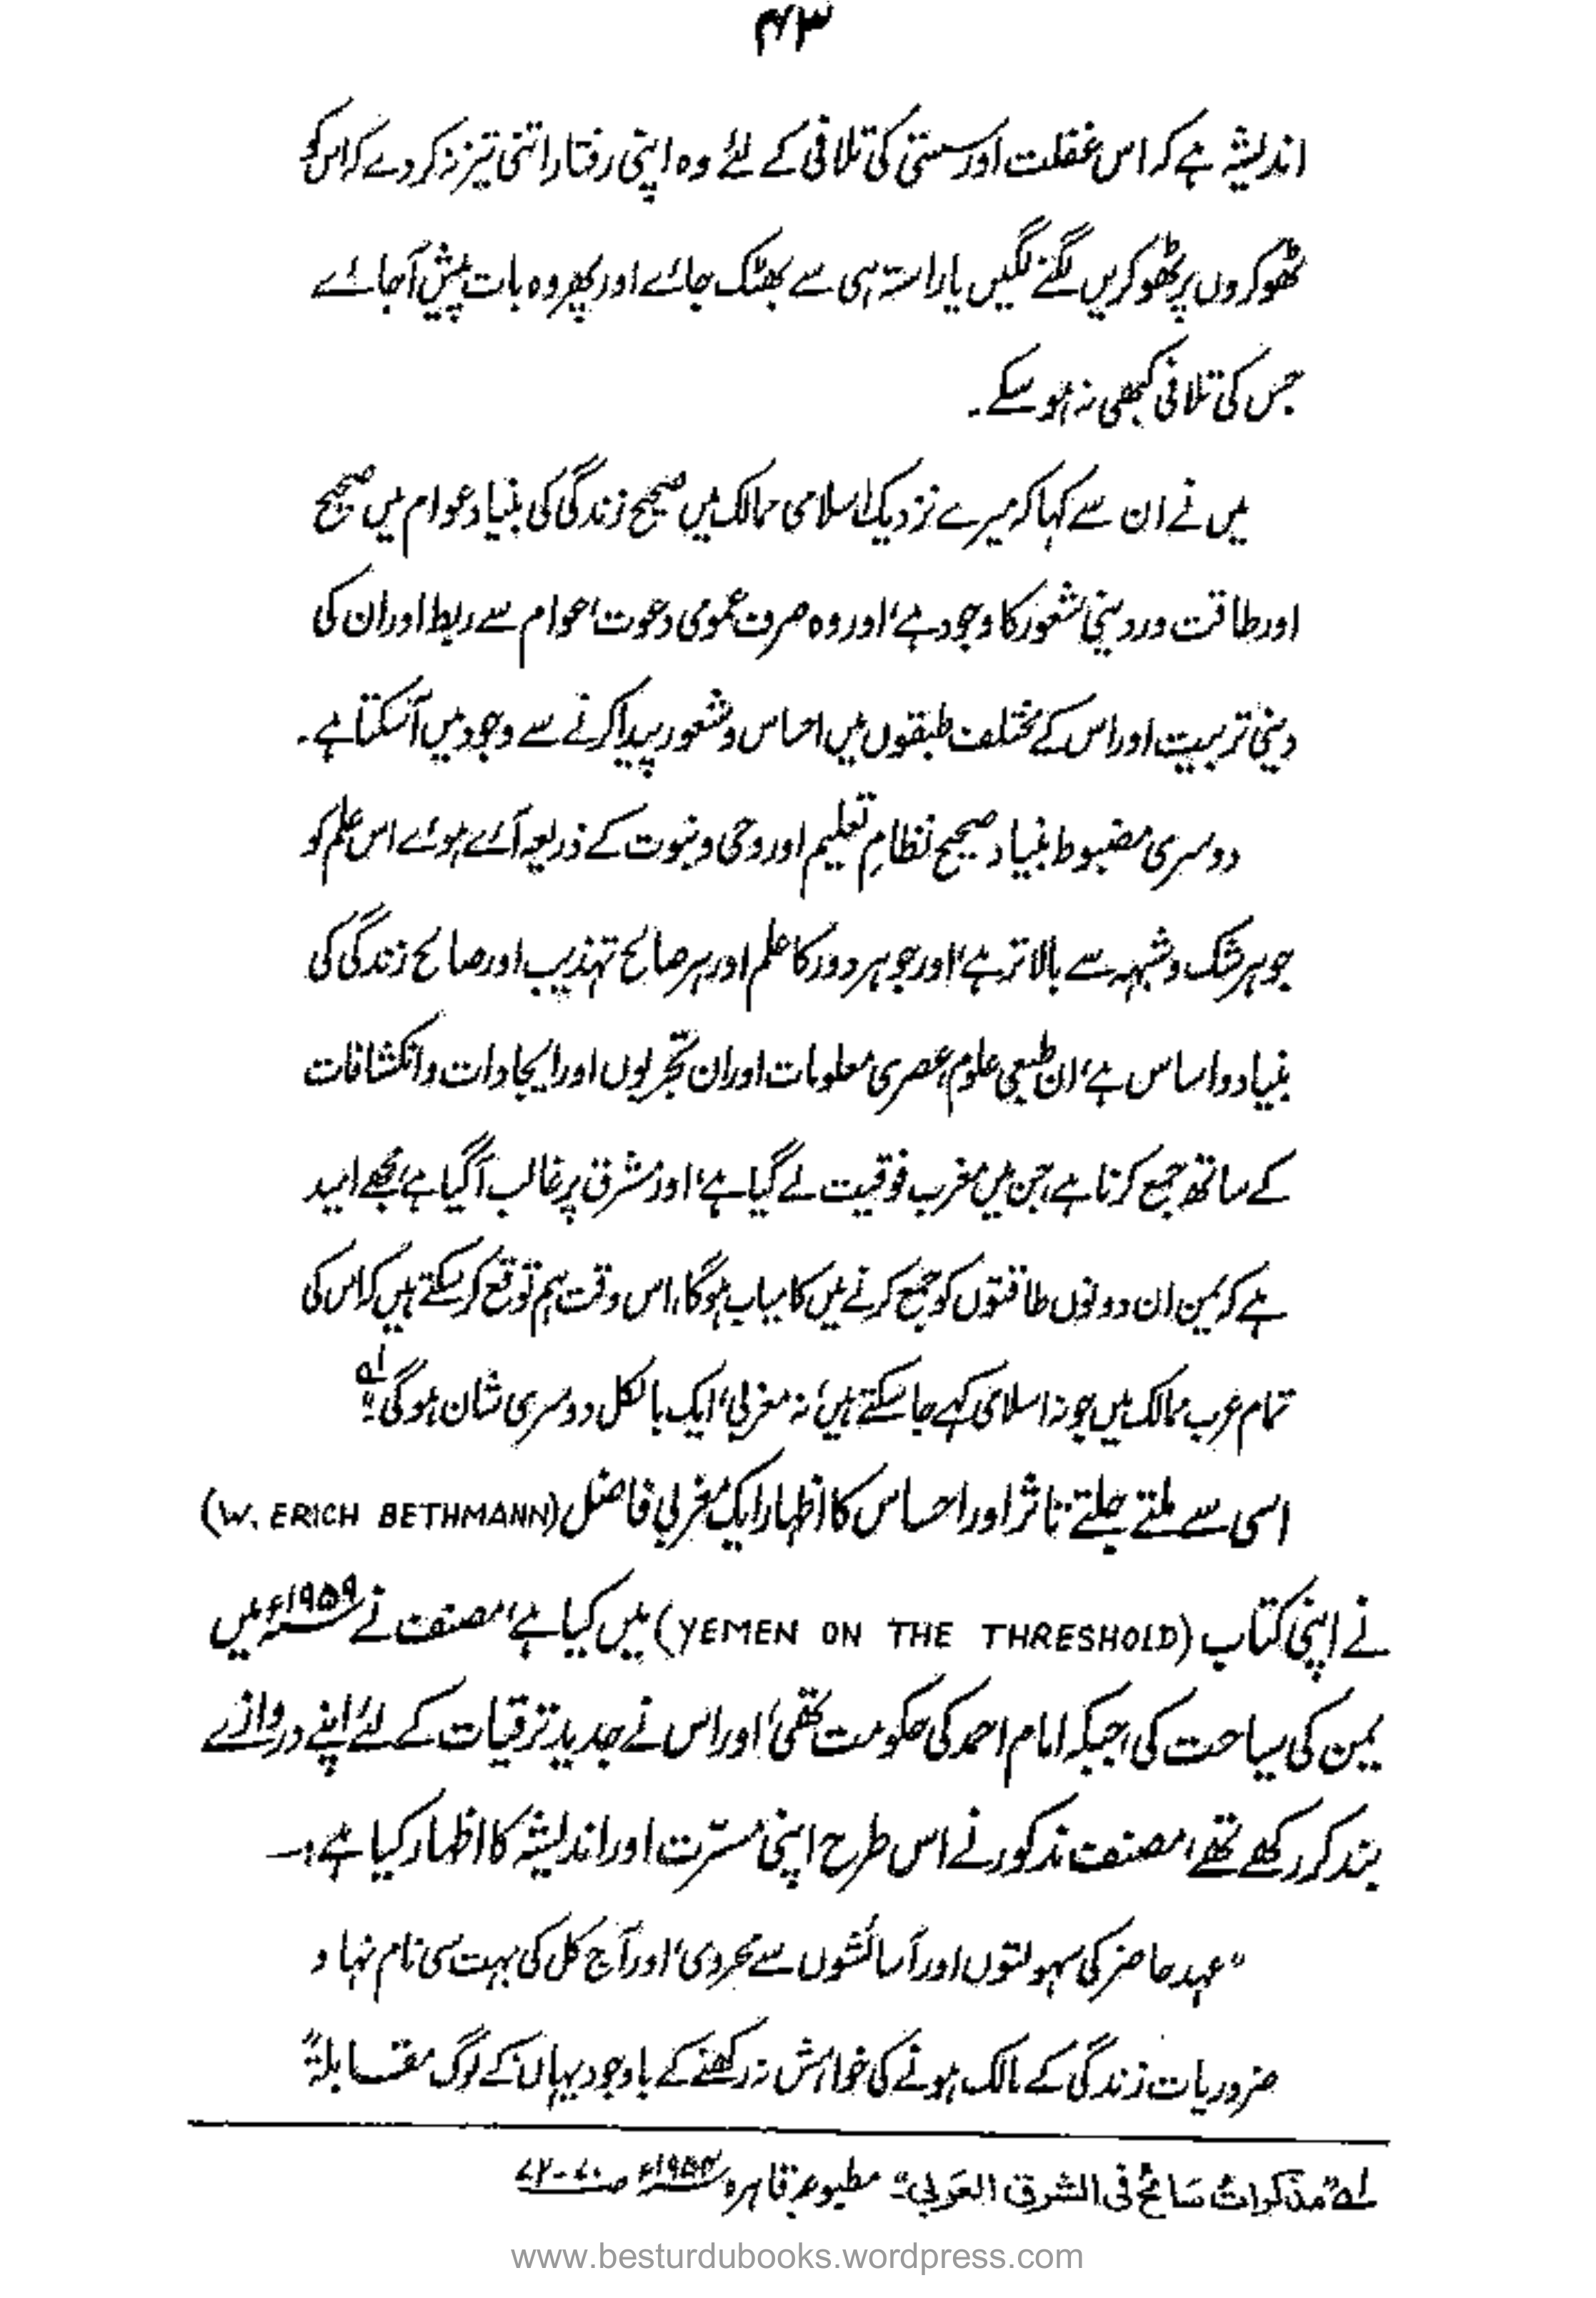 ۴۳
اندیشہ ہے کہ اس غفلت اور سستی کی تلافی کے لئے وہ اپنی رفتار اتنی تیز نہ کر دے کہ اس کو
ٹھوکروں پر ٹھوکریں لگنے لگیں یا راستہ ہی سے بھٹک جائے اور پھر وہ بات پیش آجائے
جس کی تلافی کبھی نہ ہو سکے۔
میں نے ان سے کہا کہ میرے نزدیک اسلامی ممالک میں صحیح زندگی کی بنیاد عوام میں صحیح
اور طاقت ور دینی شعور کا وجود ہے، اور وہ صرف عمومی دعوت، عوام سے ربط اور ان کی
دینی تربیت اور اس کے مختلف طبقوں میں احساس و شعور پیدا کرنے سے وجود میں آسکتا ہے۔
دوسری مضبوط بنیاد صحیح نظامِ تعلیم اور وحی و نبوت کے ذریعہ آئے ہوئے اس علم کو
جو ہر شک و شبہہ سے بالاتر ہے، اور جو ہر دور کا علم اور ہر صالح تہذیب اور صالح زندگی کی
بنیاد و اساس ہے، ان طبیعی علوم، عصری معلومات اور ان تجربوں اور ایجادات و انکشافات
کے ساتھ جمع کرنا ہے، جن میں مغرب فوقیت لے گیا ہے، اور مشرق پر غالب آگیا ہے، مجھے امید
ہے کہ یمن ان دونوں طاقتوں کو جمع کرنے میں کامیاب ہوگا، اس وقت ہم توقع کر سکتے ہیں کہ اس کی
تمام عرب ممالک میں جو نہ اسلامی کہے جا سکتے ہیں، نہ مغربی، ایک بالکل دوسری شان ہوگی"؎۱
اسی سے ملتے جلتے تاثر اور احساس کا اظہار ایک مغربی فاضل (W. ERICH BETHMANN)
نے اپنی کتاب (YEMEN ON THE THRESHOLD) میں کیا ہے، مصنف نے ۱۹۵۹ء میں
یمن کی سیاحت کی، جبکہ امام احمد کی حکومت تھی، اور اس نے جدید ترقیات کے لئے اپنے دروازے
بند کر رکھے تھے، مصنف مذکور نے اس طرح اپنی مسرّت اور اندیشہ کا اظہار کیا ہے:۔
"عہد حاضر کی سہولتوں اور آسائشوں سے محرومی، اور آج کل کی بہت سی نام نہاد
ضروریات زندگی کے مالک ہونے کی خواہش نہ رکھنے کے باوجود یہاں کے لوگ مقابلۃً
؎۱ "مذکرات سائح فی الشرق العربی" مطبوعہ قاہرہ ۱۹۵۴ء صـ ۷۰-۷۲
www.besturdubooks.wordpress.com